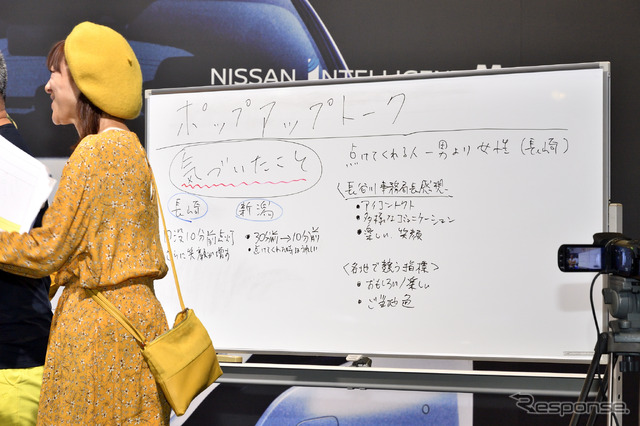 NISSAN INTELLIGEN M
ポップアップトーク
気づいたこと
点けてくれる人 ー 男より女性 (長崎)
長崎
新潟
日没10分前点灯
さらに笑顔が増す
・30分前→10分前
・点けてくれた時がうれしい
<長谷川事務局長発現>
・アイコンタクト
・多様なコミュニケーション
・楽しい 笑顔
<各地で競う指標>
・おもしろい/楽しい
・ご当地色
Response.